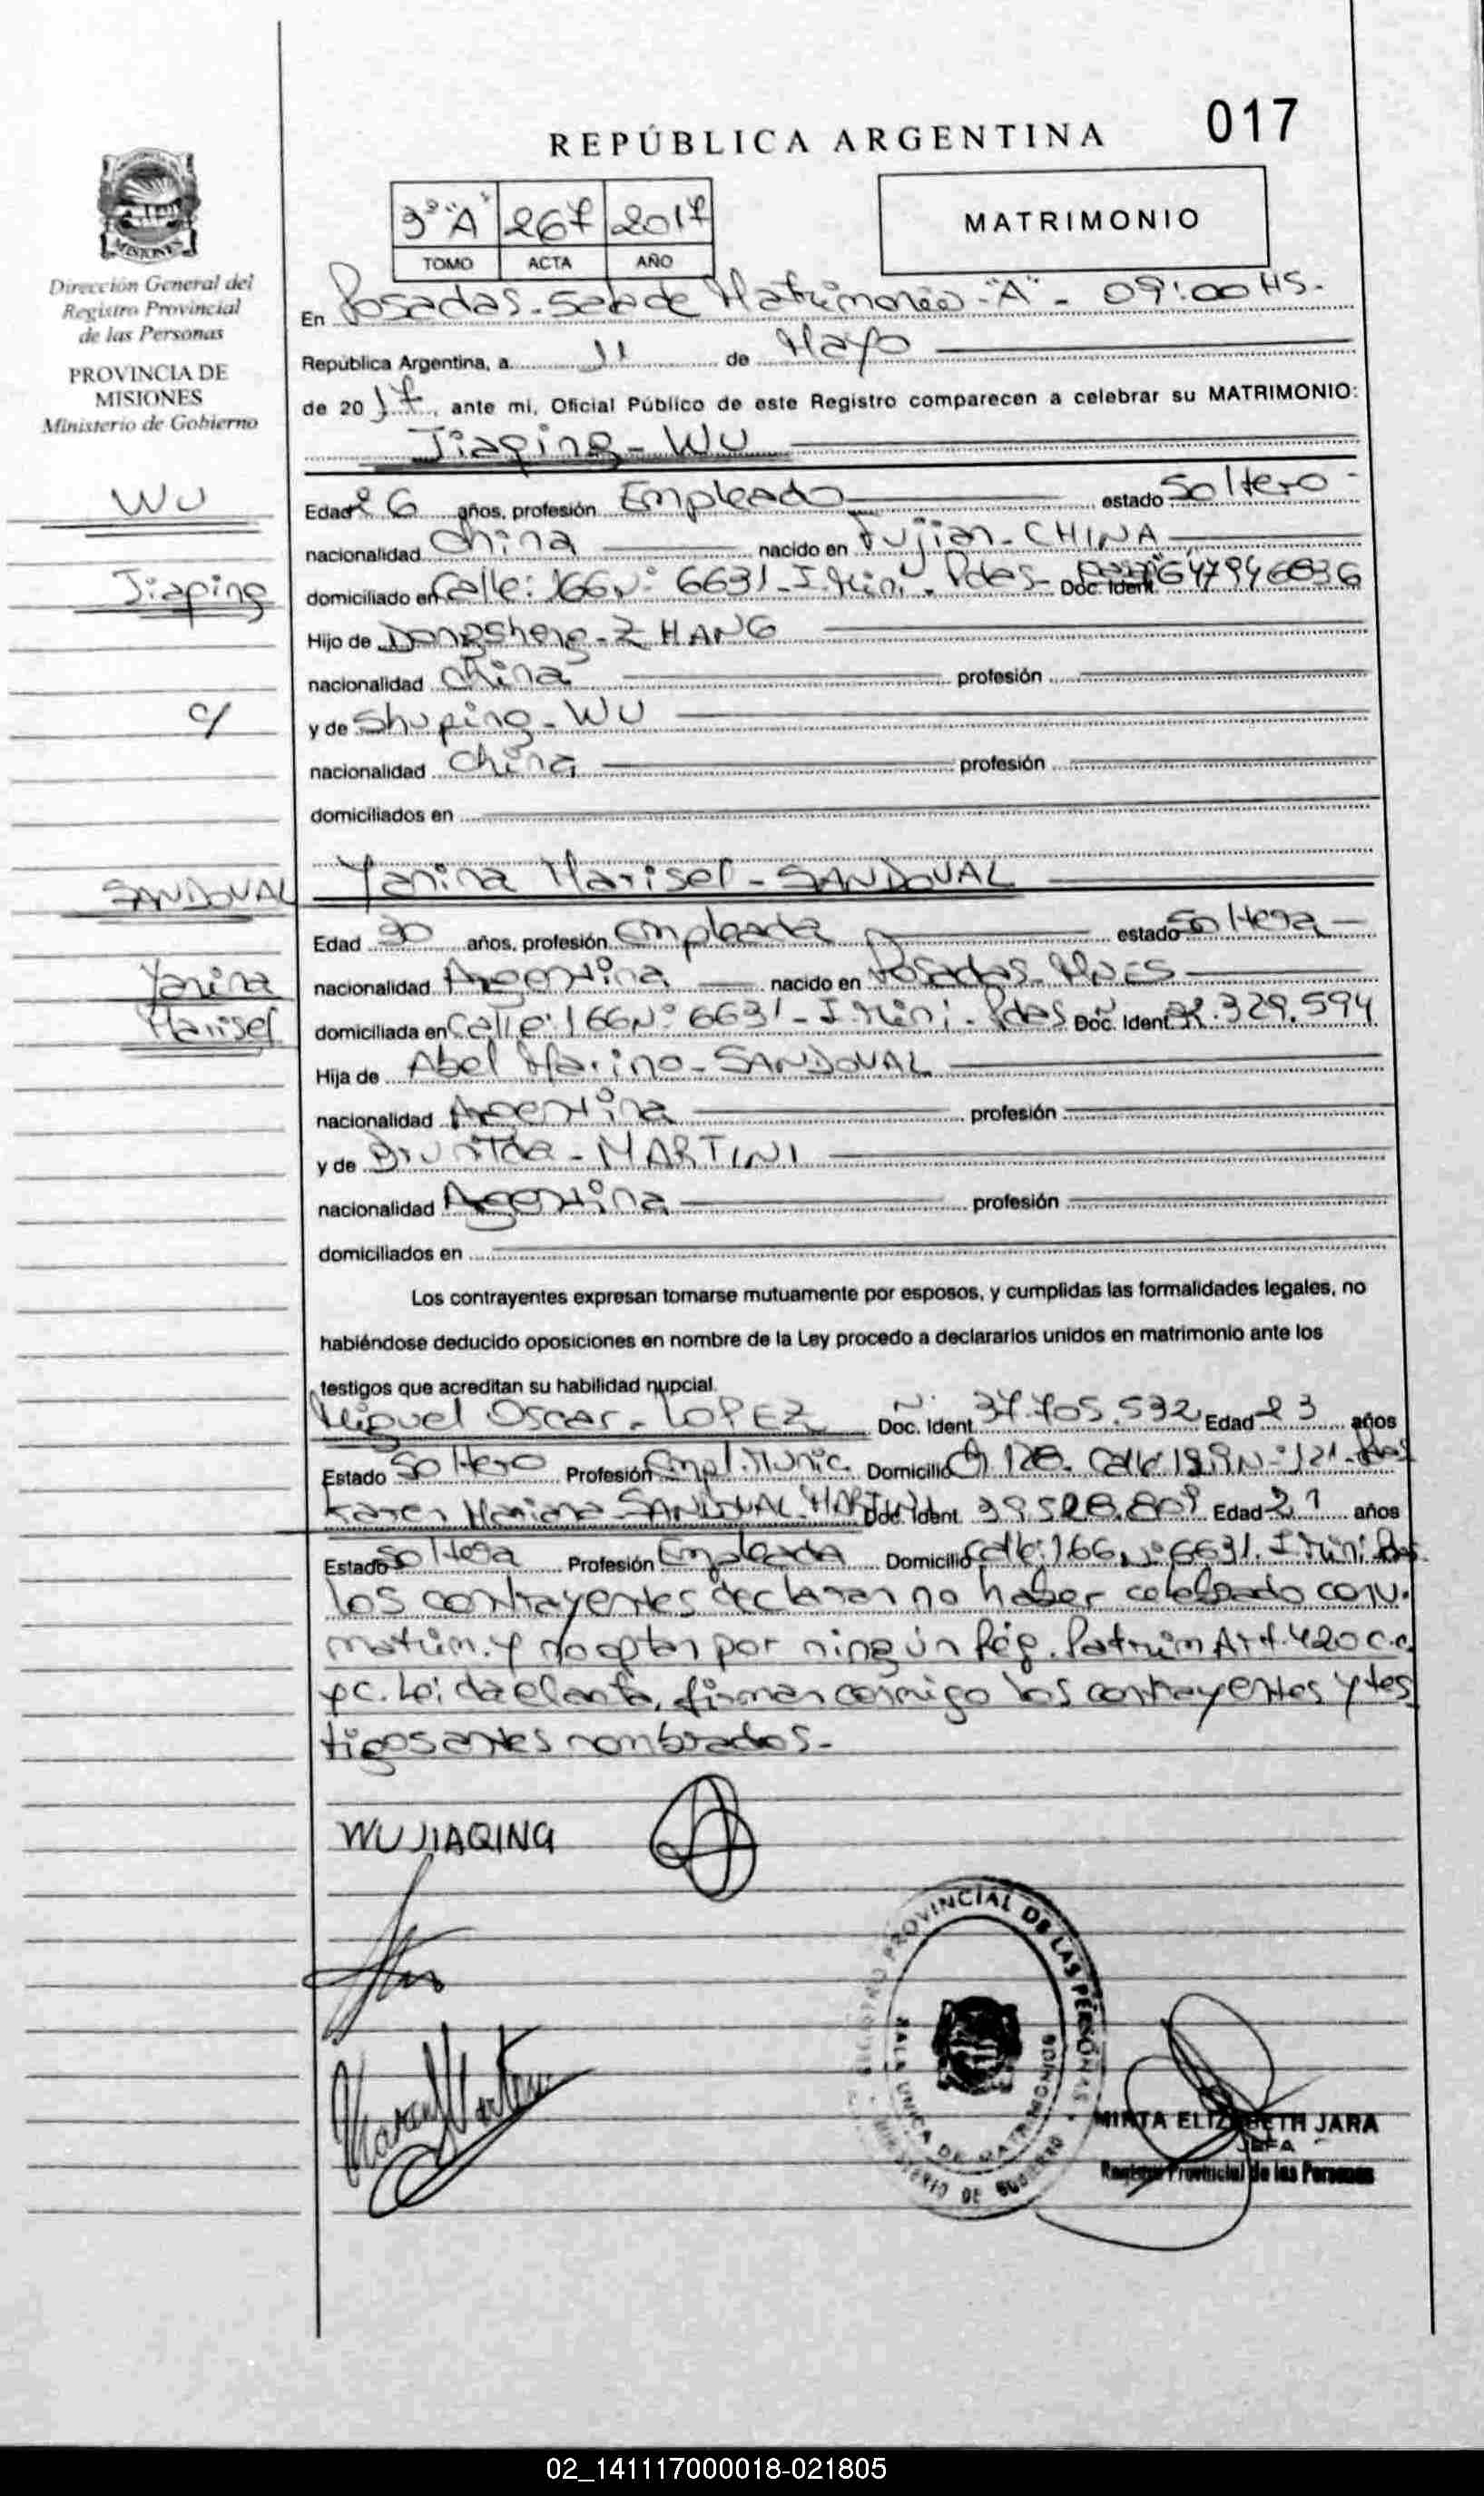 017
REPÚBLICA ARGENTINA
MATRIMONIO
3º "A" 267 2017
TOMO ACTA AÑO
MISIONES
Dirección General del
Registro Provincial
de las Personas
PROVINCIA DE
MISIONES
Ministerio de Gobierno
En Posadas - Sala de Matrimonio - "A" - 09:00 HS -
República Argentina, a 11 de Mayo
de 2017, ante mi, Oficial Público de este Registro comparecen a celebrar su MATRIMONIO:
Jiaqing - WU
WU
Edad 26 años, profesión Empleado estado Soltero -
nacionalidad China nacido en Fujian - CHINA
Jiaping
domiciliado en Calle: 166 Nº 6631 - I. Mini - Pdas - Doc. Ident.
Hijo de Dongsheng - ZHANG
nacionalidad China profesión
c/
y de Shuping - WU
nacionalidad China profesión
domiciliados en
Yanina Marisel - SANDOVAL
SANDOVAL
Edad 30 años, profesión Empleada estado Soltera -
Yanina
Marisel
nacionalidad Argentina nacido en Posadas - Mnes
domiciliada en Calle: 166 Nº 6631 - I. Mini - Pdas Doc. Ident 32.329.594
Hija de Abel Marino - SANDOVAL
nacionalidad Argentina profesión
y de Brunilda - MARTINI
nacionalidad Argentina profesión
domiciliados en
Los contrayentes expresan tomarse mutuamente por esposos, y cumplidas las formalidades legales, no
habiéndose deducido oposiciones en nombre de la Ley procedo a declararlos unidos en matrimonio ante los
testigos que acreditan su habilidad nupcial.
Miguel Oscar - LOPEZ Doc. Ident 37.705.532 Edad 23 años
Estado Soltero Profesión Empl. Munic. Domicilio Ch 128. Calle Nº 121 - Pdas
Karen Mariana SANDOVAL MARTINI Doc. Ident 39.528.809 Edad 21 años
Estado Soltera Profesión Empleada Domicilio Calle: 166 Nº 6631. I. Mini. Pdas
Los contrayentes declaran no haber celebrado conv.
matrim. y no optan por ningún Rég. Patrim Art. 420 C.C.
y C. Leída el acta, firman conmigo los contrayentes y tes
tigos antes nombrados -
WU JIAQING
Karen Martini
REGISTRO PROVINCIAL DE LAS PERSONAS
SALA UNICA DE MATRIMONIOS
MINISTERIO DE GOBIERNO
MIRTA ELIZABETH JARA
JEFA
Registro Provincial de las Personas
02_141117000018-021805